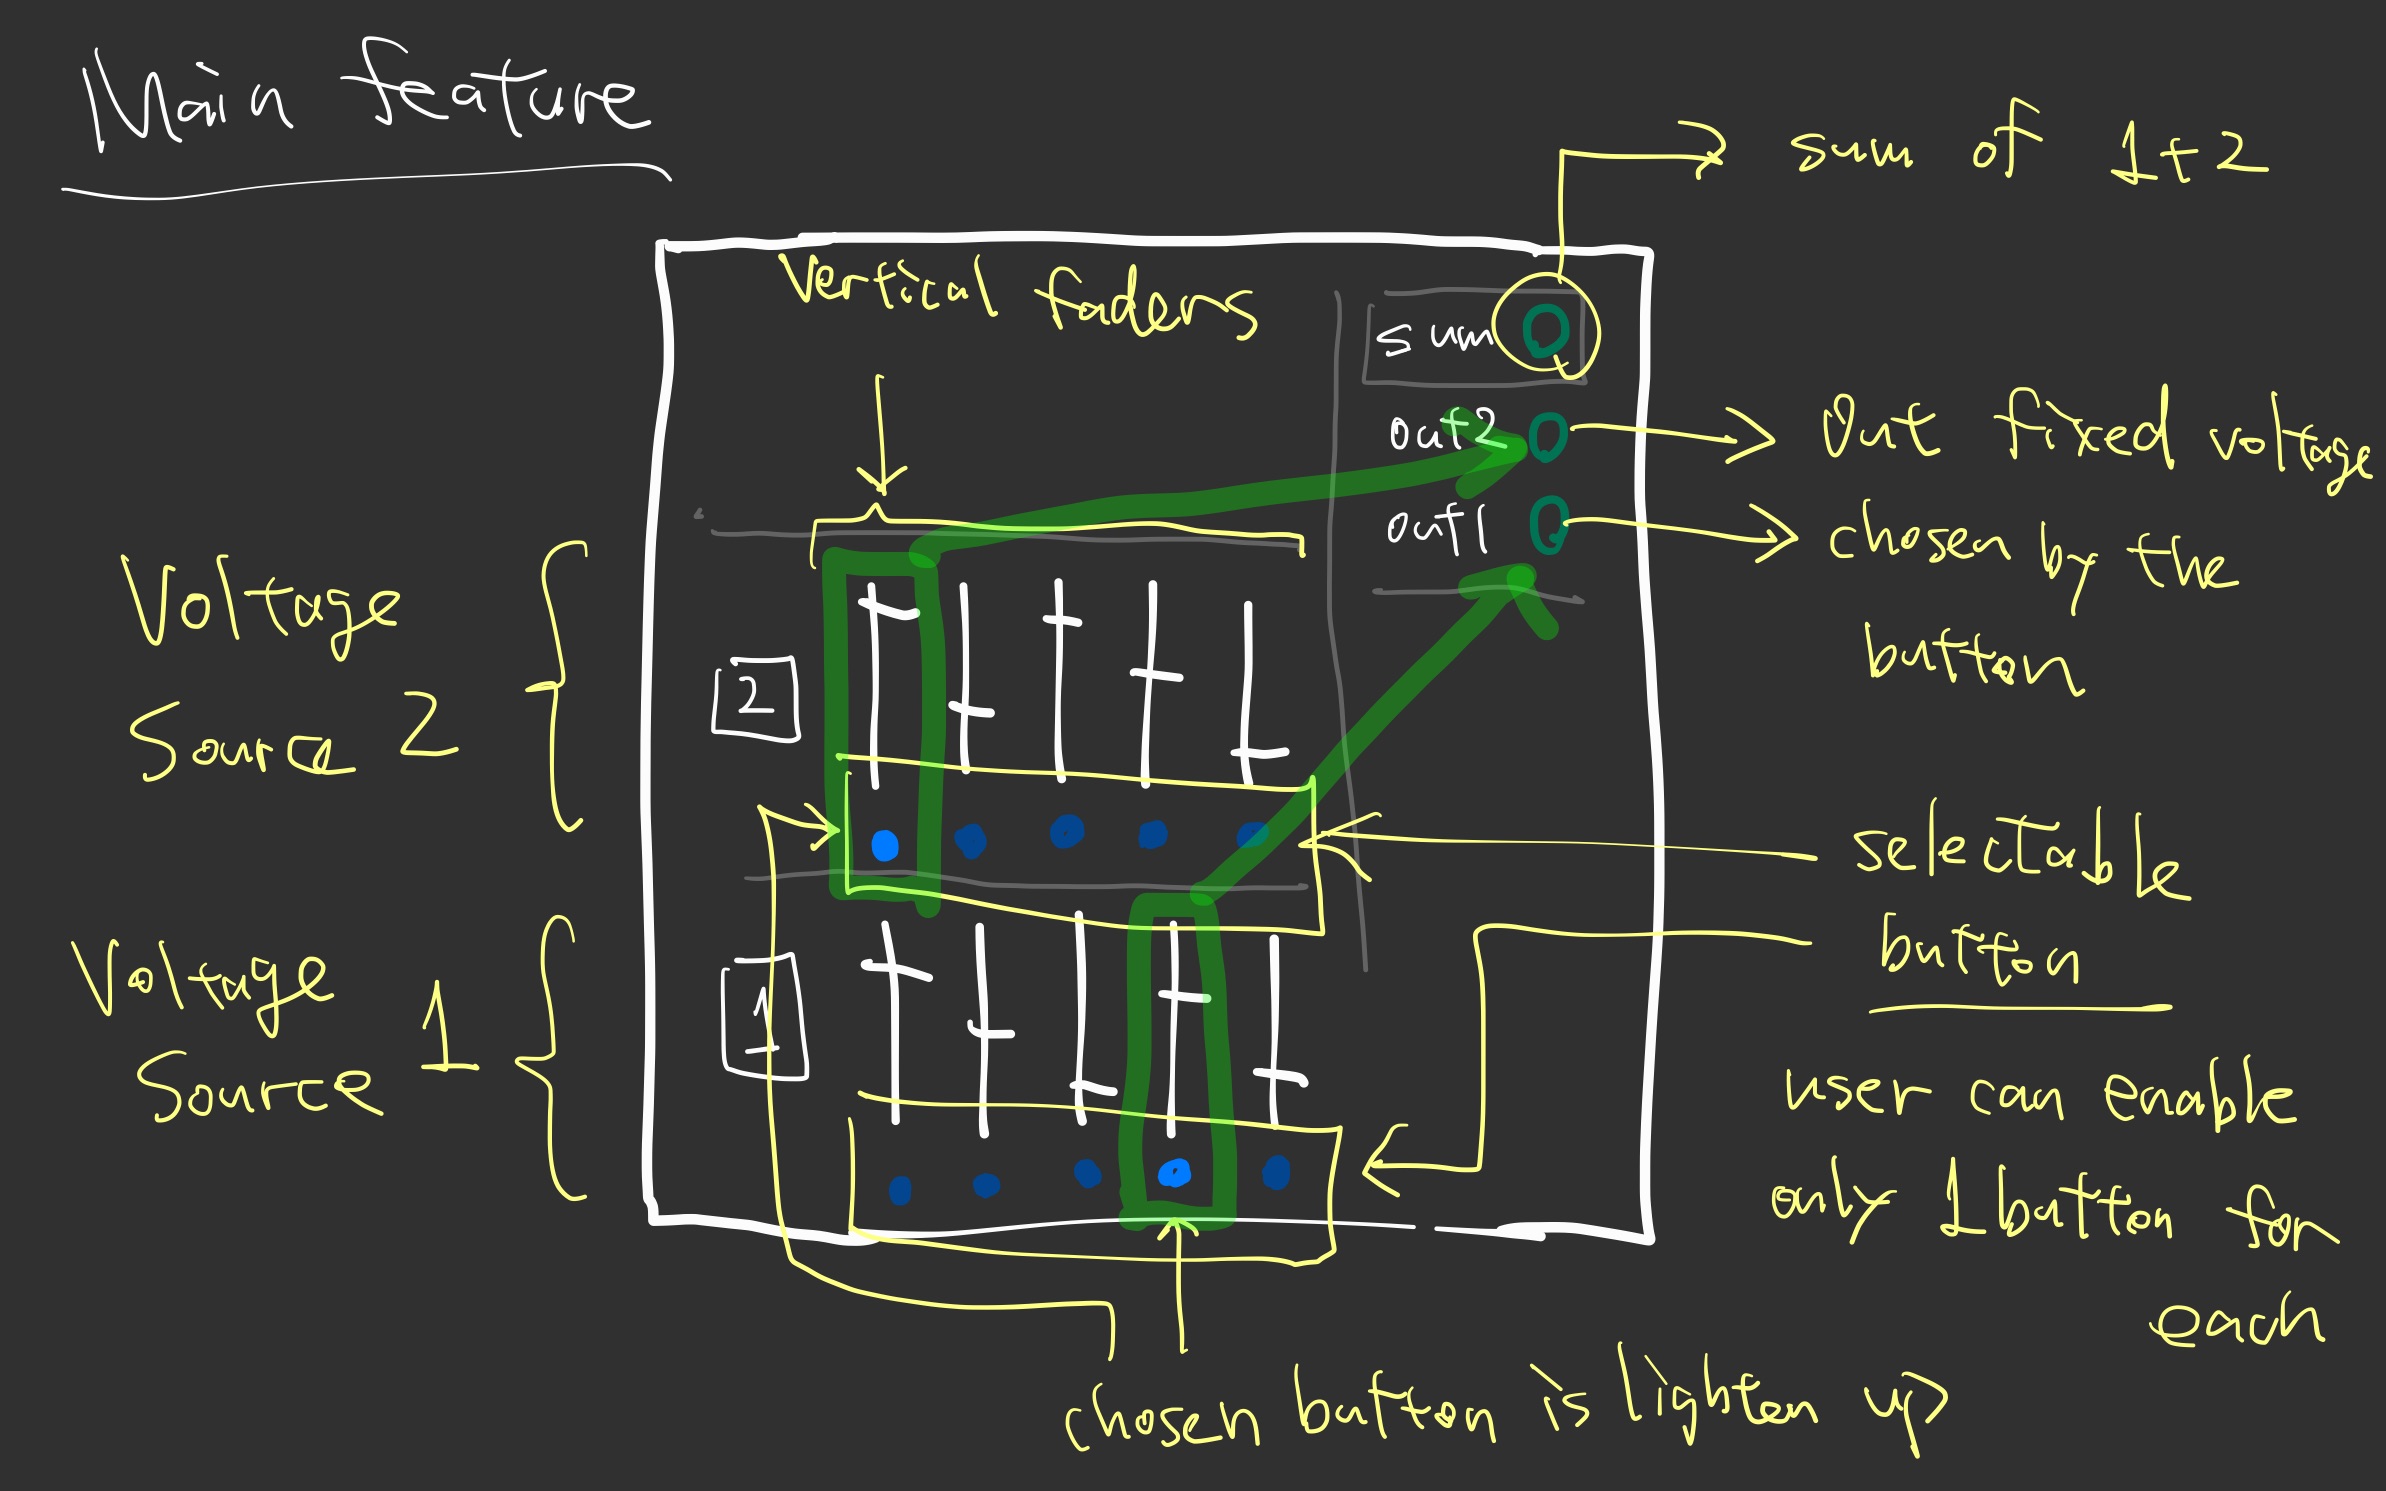 Main feature
sum of 1+2
Vertical faders
sum
out2
out1
Out fixed voltage
chosen by the
button
Voltage
Source 2
2
selectable
button
Voltage
Source 1
1
user can enable
only 1 button for
each
chosen button is lighten up